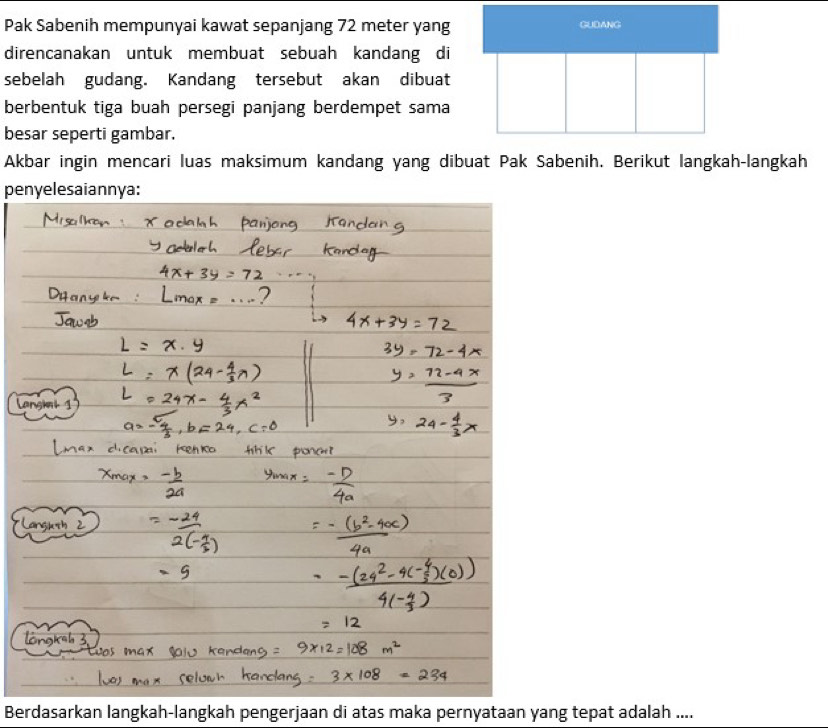 Pak Sabenih mempunyai kawat sepanjang 72 meter yang
direncanakan untuk membuat sebuah kandang di
sebelah gudang. Kandang tersebut akan dibuat
berbentuk tiga buah persegi panjang berdempet sama
besar seperti gambar.
GUDANG
Akbar ingin mencari luas maksimum kandang yang dibuat Pak Sabenih. Berikut langkah-langkah
penyelesaiannya:
Misalkan : x adalah panjang kandang
y adalah lebar kandag
4x + 3y = 72 .....
Ditanyakan : Lmax = ....?
Jawab
4x + 3y = 72
L = x . y
3y = 72 - 4x
L = x (24 - 4/3 x)
y = 72 - 4x / 3
Langkah 1
L = 24x - 4/3 x²
a = -4/3, b = 24, c = 0
y = 24 - 4/3 x
Lmax dicapai ketika titik puncak
xmax = -b / 2a
ymax = -D / 4a
Langkah 2
= -24 / 2(-4/3)
= -(b² - 4ac) / 4a
= 9
= -(24² - 4(-4/3)(0)) / 4(-4/3)
= 12
Langkah 3
Luas max satu kandang = 9 x 12 = 108 m²
∴ luas max seluruh kandang = 3 x 108 = 234
Berdasarkan langkah-langkah pengerjaan di atas maka pernyataan yang tepat adalah ....